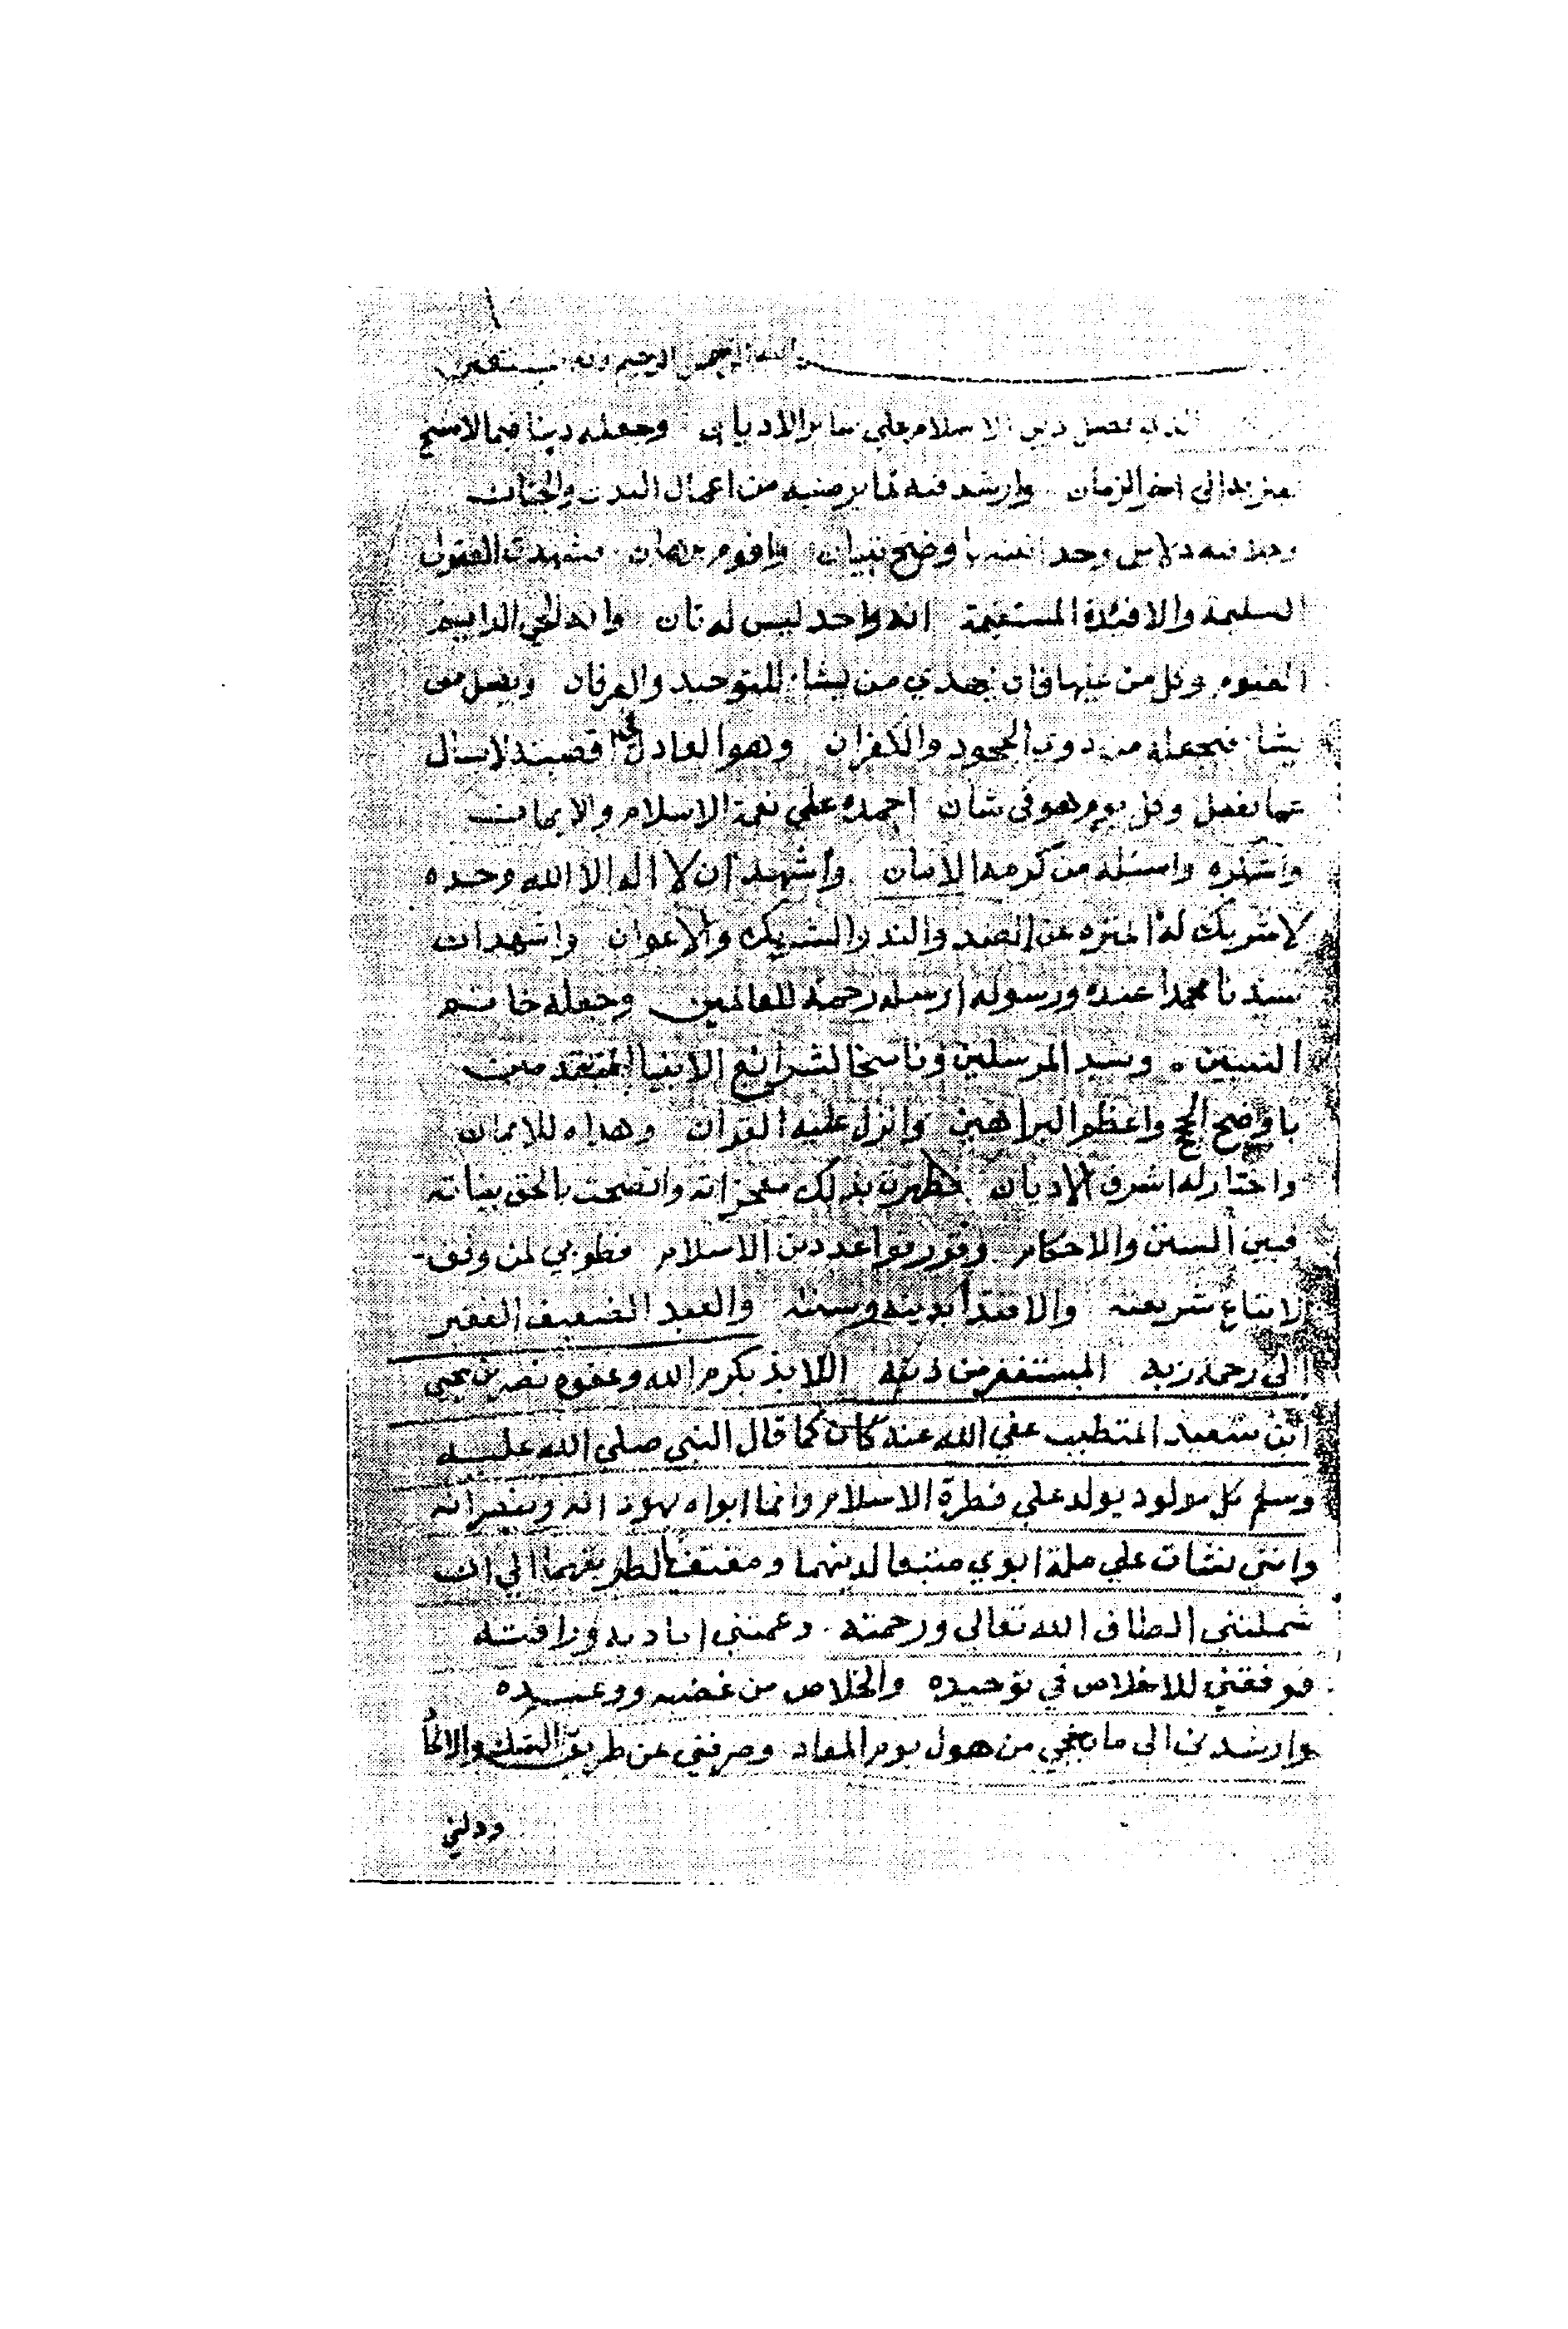 بسم الله الرحمن الرحيم وبه نستعين
الذي فضل دين الاسلام علي سائر الاديان وجعله دينا قيما لا تنسخ
الي اخر الزمان وارشد فيه لما يرضيه من اعمال البدن والجنان
دلايل وحدانيته باوضح تبيان واقوم برهان فشهدت العقول
السليمة والافئدة المستقيمة انه واحد ليس له ثان وانه الحي الدايم
القيوم وكل من عليها فان يهدي من يشا للتوحيد والعرفان ويضل من
يشا فيجعله من ذوي الجحود والكفران وهو العادل في اقضيته لا يسال
عما يفعل وكل يوم هو في شان احمده علي نعمة الاسلام والايمان
واشكره واسئله من كرمه الامان واشهد ان لا اله الا الله وحده
لا شريك له المنزه عن الضد والند والشريك والاعوان واشهد ان
سيدنا محمدا عبده ورسوله ارسله رحمة للعالمين وجعله خاتم
النبيين . وسيد المرسلين وناسخا لشرائع الانبيا المتقدمين
باوضح الحجج واعظم البراهين وانزل عليه القران وهداه للايمان
واختار له اشرف الاديان فظهرت بذلك معجزاته واتضحت بالحق بيناته
فبين السنن والاحكام وقرر قواعد دين الاسلام فطوبي لمن وفق
لاتباع شريعته والاقتدا بدينه وسنته والعبد الضعيف الفقير
الي رحمة ربه المستغفر من ذنبه اللائذ بكرم الله وعفوه نصر بن يحيي
ابن سعيد المتطبب عفي الله عنه كان كما قال النبي صلي الله عليه
وسلم كل مولود يولد علي فطرة الاسلام وانما ابواه يهودانه وينصرانه
وانني نشات علي ملة ابوي متبعا لدينهما ومقتفيا لطريقهما الي ان
شملتني الطاف الله تعالي ورحمته وعمتني اياديه ورافته
فوفقني للاخلاص في توحيده والخلاص من غضبه ووعيده
وارشدني الي ما ينجي من هول يوم المعاد وصرفني عن طريق الشك والالحا
ودلني